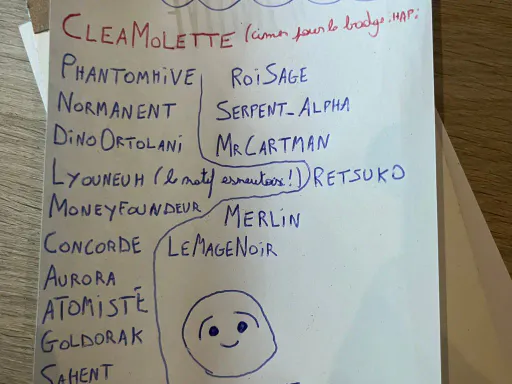 CLEAMOLETTE
PHANTOMHIVE
NORMANENT
DINOORTOLANI
LYOUNEUH (le motif
MONEYFOUNDEUR
CONCORDE
AURORA
ATOMISTE
GOLDORAK
SAHENT
ROISAGE
SERPENT_ALPHA
MRCARTMAN
RETSUKO
MERLIN
LEMAGENOIR